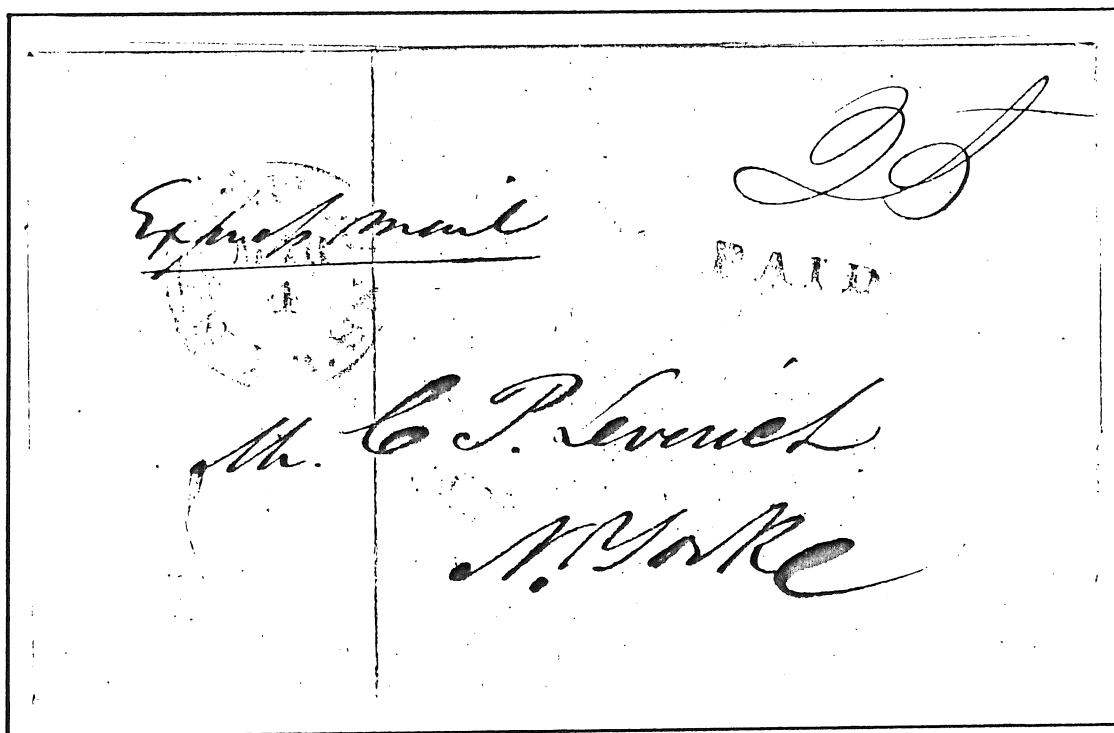 25
Express mail
PAID
MAR
1
Mr. C P. Leverich
N. Yorke